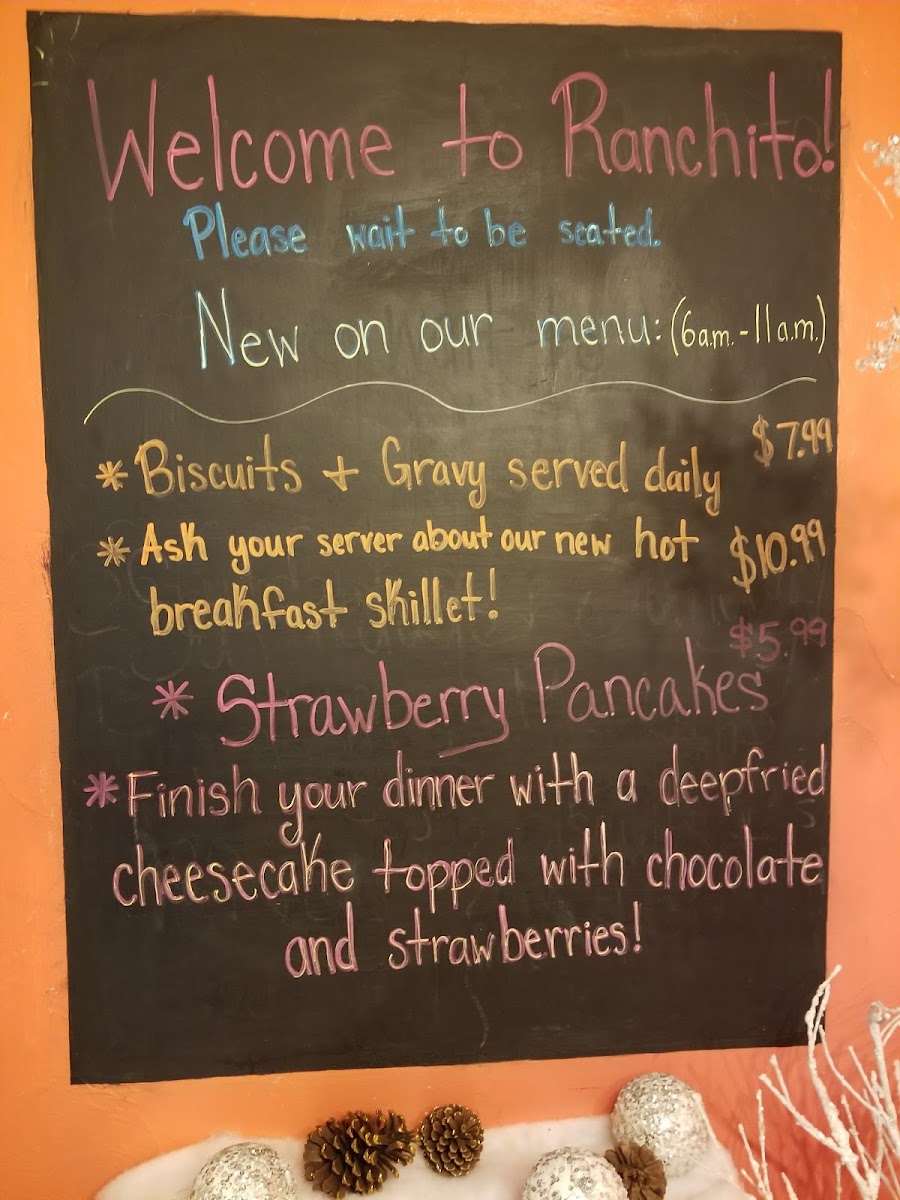 Welcome to Ranchito!
Please wait to be seated.
New on our menu: (6a.m.-11a.m.)
* Biscuits + Gravy served daily $7.99
* Ask your server about our new hot $10.99
breakfast skillet!
$5.99
* Strawberry Pancakes
* Finish your dinner with a deepfried
cheesecake topped with chocolate
and strawberries!